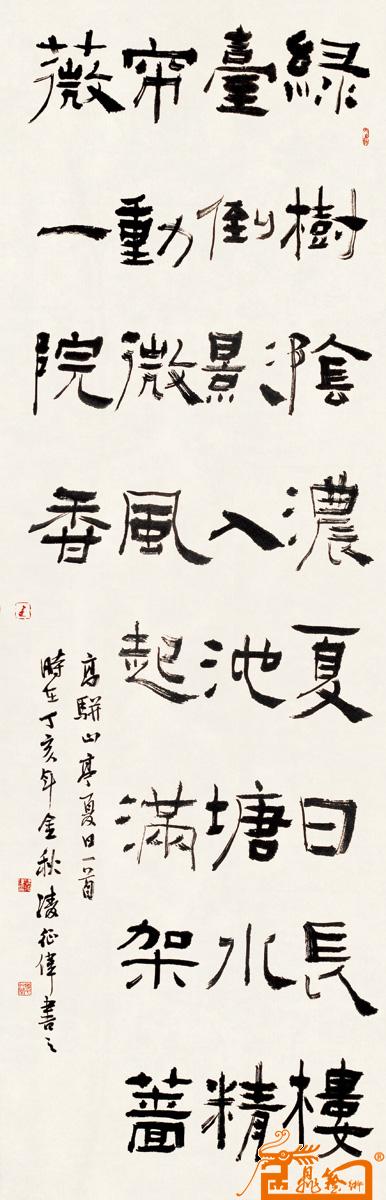 綠樹陰濃夏日長樓
臺倒景入池塘水精
帘動微風起滿架薔
薇一院香
高駢山亭夏日一首
時在丁亥年金秋凌征偉書之